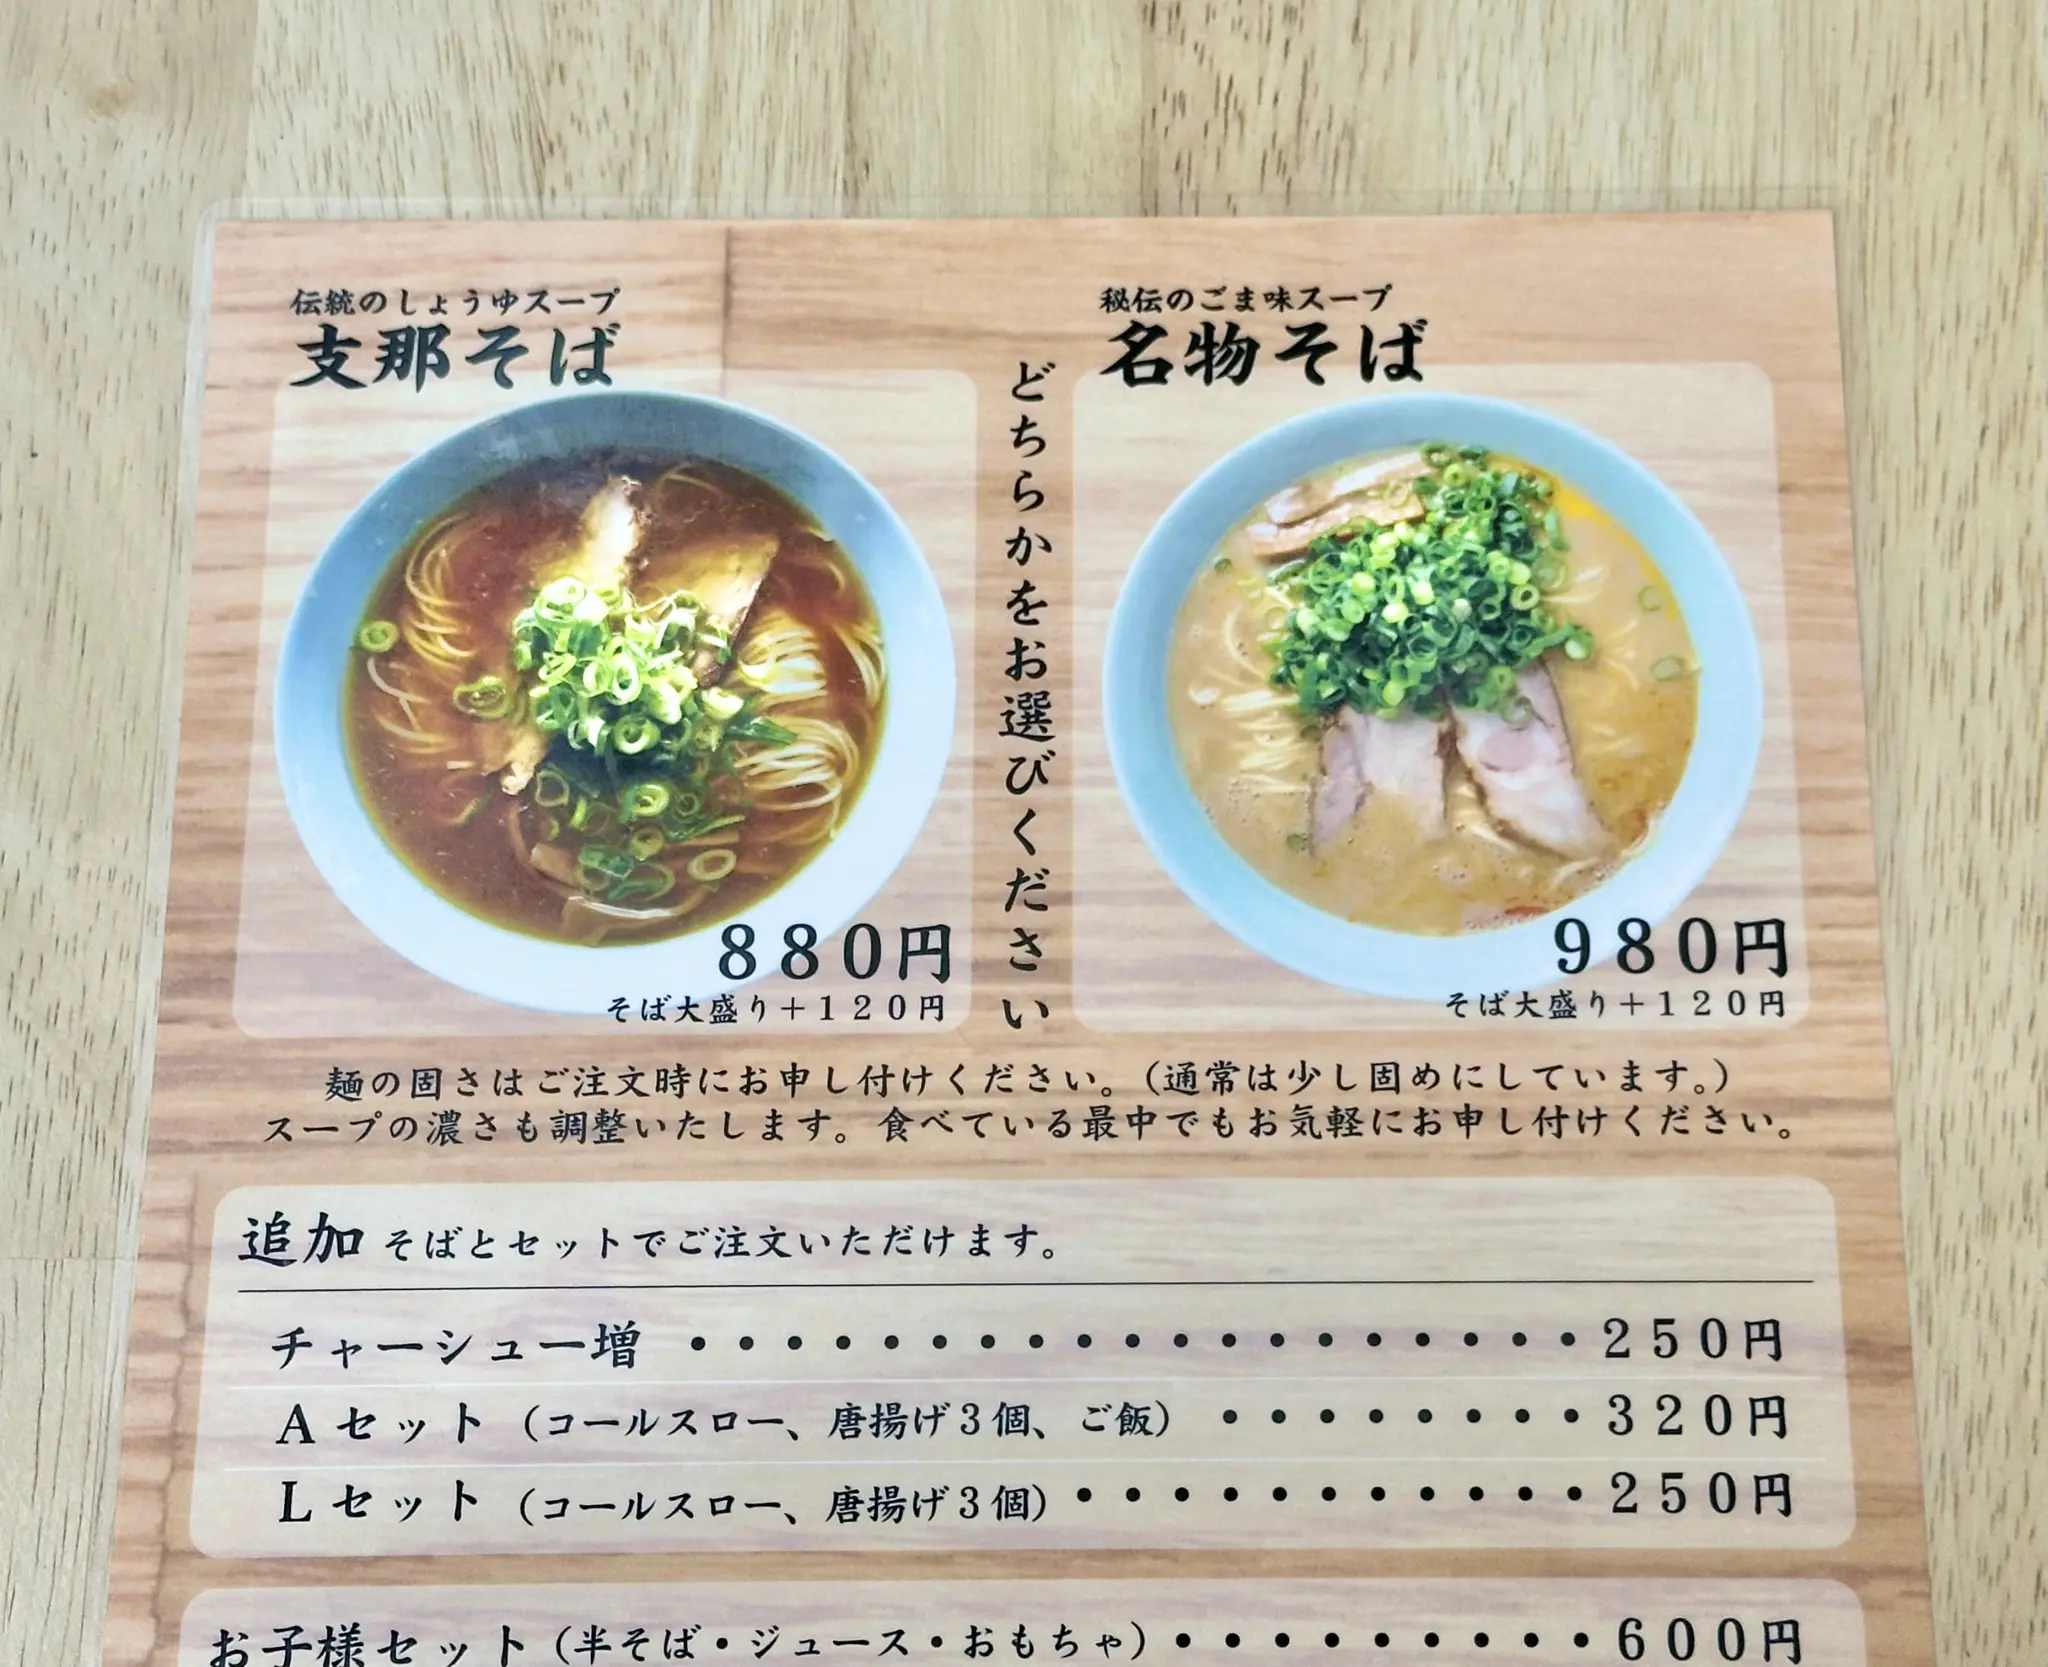 伝統のしょうゆスープ
支那そば
880円
そば大盛り+120円
どちらかをお選びください
秘伝のごま味スープ
名物そば
980円
そば大盛り+120円
麺の固さはご注文時にお申し付けください。(通常は少し固めにしています。)
スープの濃さも調整いたします。食べている最中でもお気軽にお申し付けください。
追加 そばとセットでご注文いただけます。
チャーシュー増 ・・・・・・・・・・・・・・・・・・・250円
Aセット (コールスロー、唐揚げ3個、ご飯) ・・・・・・・・320円
Lセット (コールスロー、唐揚げ3個)・・・・・・・・・・・250円
お子様セット (半そば・ジュース・おもちゃ)・・・・・・・・・600円